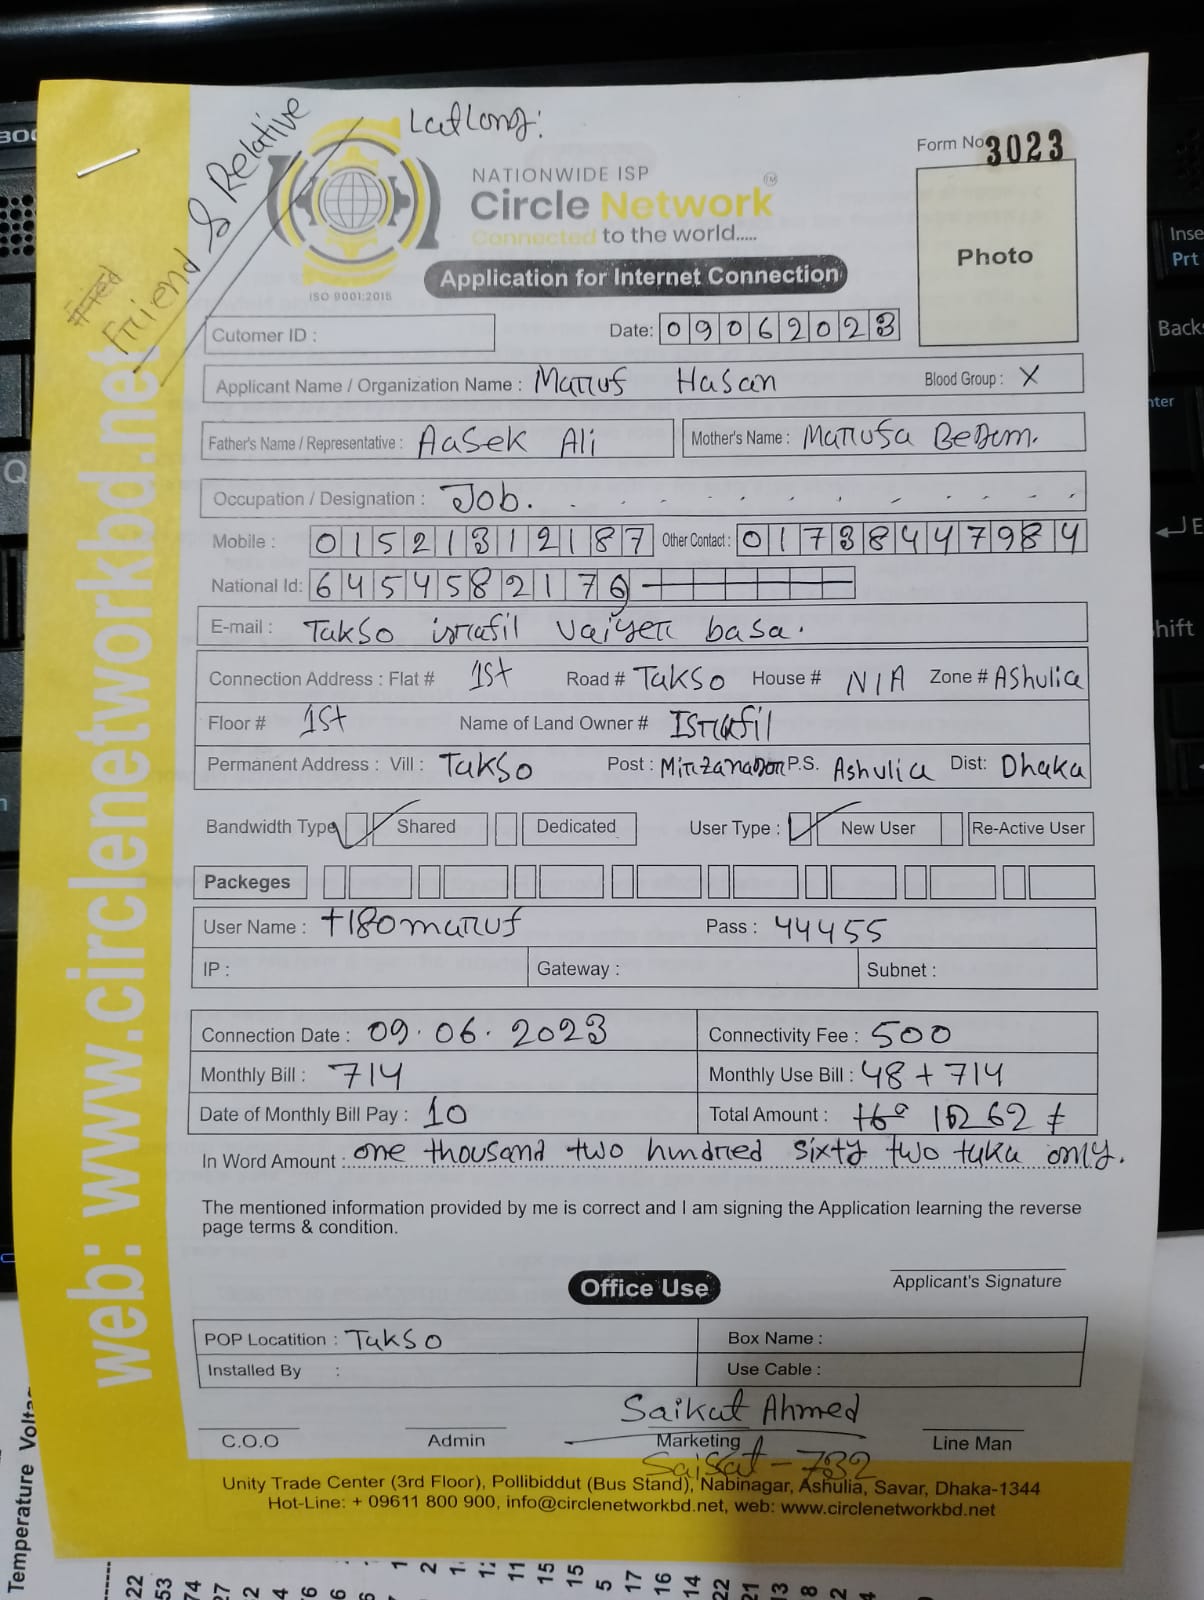 Latlong:
Friend & Relative
Form No 3023
NATIONWIDE ISP
Circle Network TM
Connected to the world.....
ISO 9001:2015
Application for Internet Connection
Photo
Cutomer ID :
Date: 09062023
Applicant Name / Organization Name : Maruf Hasan Blood Group : X
Father's Name / Representative : Aasek Ali Mother's Name : Marufa Begum.
Occupation / Designation : Job.
Mobile : 01521312187 Other Contact : 01738447984
National Id: 6454582176
E-mail : Takso israfil vaiyer basa.
Connection Address : Flat # 1st Road # Takso House # N/A Zone # Ashulia
Floor # 1st Name of Land Owner # Israfil
Permanent Address : Vill : Takso Post : Mirzanagor P.S. Ashulia Dist: Dhaka
Bandwidth Type Shared Dedicated User Type : New User Re-Active User
Packeges
User Name : t180maruf Pass : 44455
IP : Gateway : Subnet :
Connection Date : 09.06.2023 Connectivity Fee : 500
Monthly Bill : 714 Monthly Use Bill : 48 + 714
Date of Monthly Bill Pay : 10 Total Amount : 1262
In Word Amount : one thousand two hundred sixty two taka only.
The mentioned information provided by me is correct and I am signing the Application learning the reverse
page terms & condition.
Applicant's Signature
Office Use
POP Locatition : Takso Box Name :
Installed By : Use Cable :
Saikat Ahmed
C.O.O Admin Marketing Line Man
Saikat - 732
Unity Trade Center (3rd Floor), Pollibiddut (Bus Stand), Nabinagar, Ashulia, Savar, Dhaka-1344
Hot-Line: + 09611 800 900, info@circlenetworkbd.net, web: www.circlenetworkbd.net
web: www.circlenetworkbd.net
Temperature